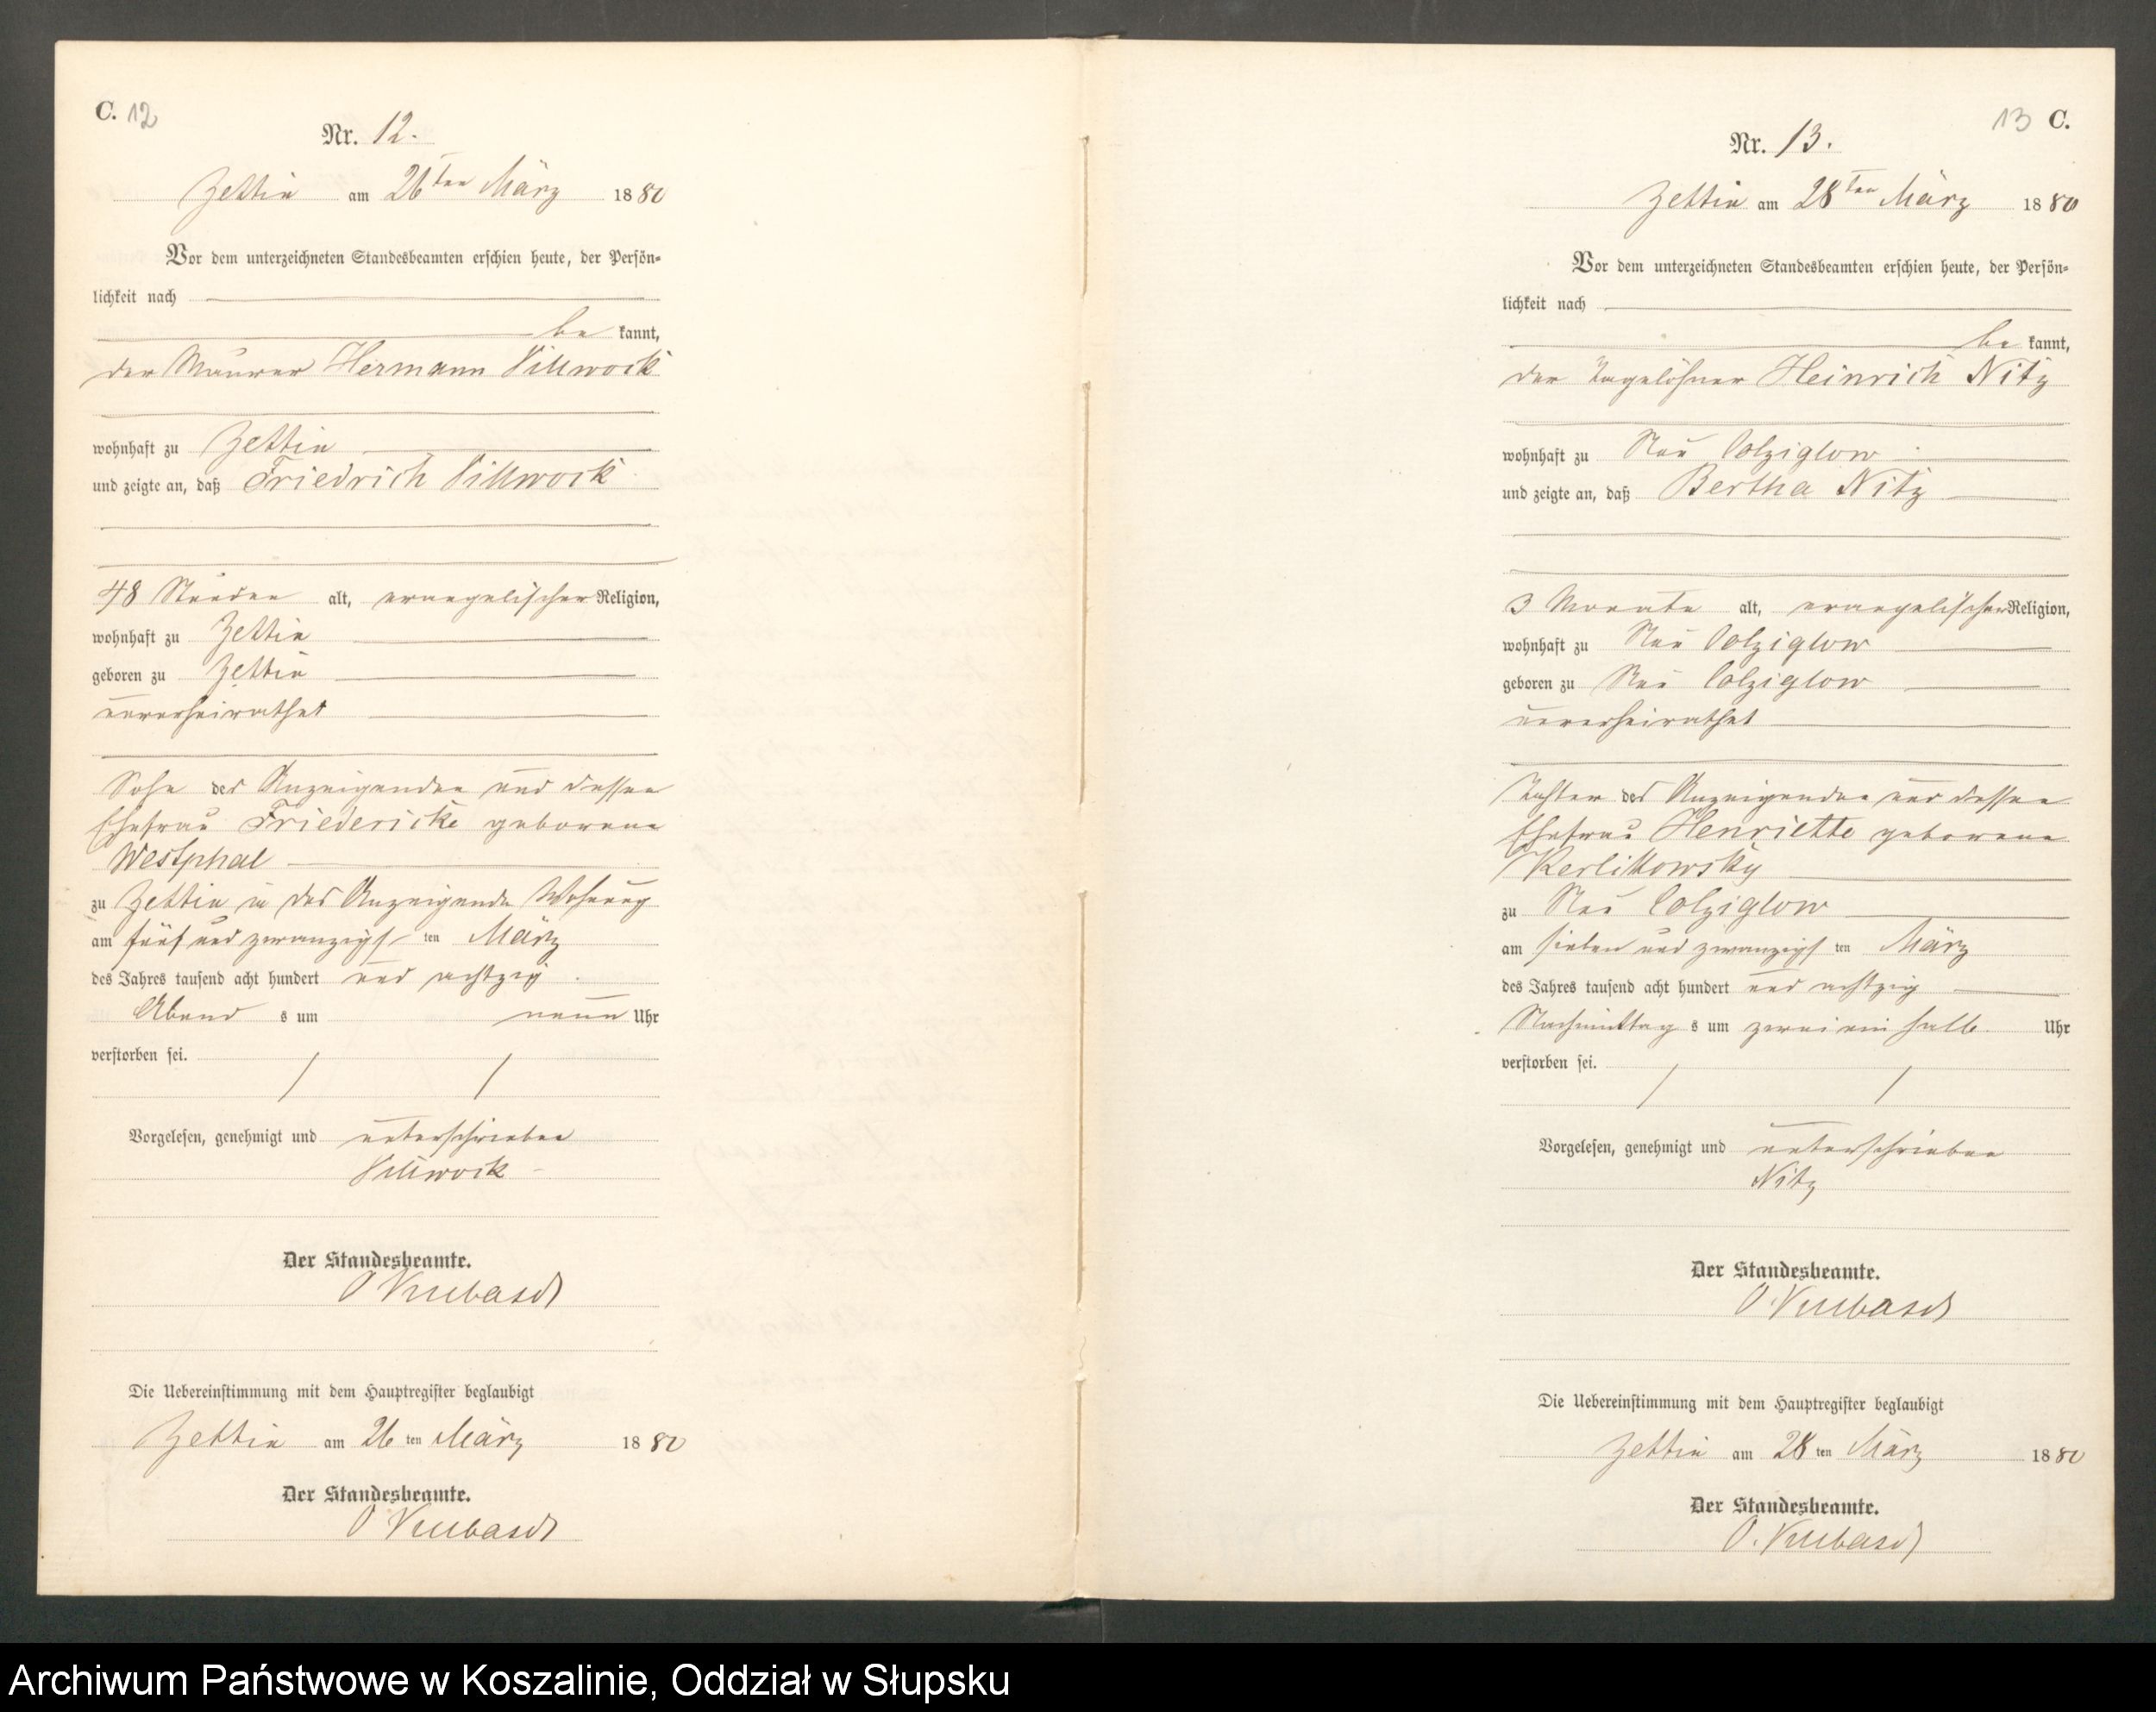 C. 12
Nr. 12.
Zettin am 26ten März 1880
Vor dem unterzeichneten Standesbeamten erschien heute, der Persön-
lichkeit nach
be kannt,
der Maurer Hermann Villwock
wohnhaft zu Zettin
und zeigte an, daß Friedrich Villwock
48 Stunden alt, evangelischer Religion,
wohnhaft zu Zettin
geboren zu Zettin
unverheirathet
Sohn des Anzeigenden und dessen
Ehefrau Friedericke geborene
Westphal
zu Zettin in des Anzeigende Wohnung
am fünf und zwanzigs ten März
des Jahres tausend acht hundert und achtzig
Abend s um neun Uhr
verstorben sei.
Vorgelesen, genehmigt und unterschrieben
Villwock
Der Standesbeamte.
O
Die Uebereinstimmung mit dem Hauptregister beglaubigt
Zettin am 26 ten März 1880
Der Standesbeamte.
O
13 C.
Nr. 13.
Zettin am 28ten März 1880
Vor dem unterzeichneten Standesbeamten erschien heute, der Persön-
lichkeit nach
be kannt,
der Tagelöhner Heinrich Nitz
wohnhaft zu Neu Colziglow
und zeigte an, daß Bertha Nitz
3 Monate alt, evangelischer Religion,
wohnhaft zu Neu Colziglow
geboren zu Neu Colziglow
unverheirathet
Tochter des Anzeigenden und dessen
Ehefrau Henriette geborene
zu Neu Colziglow
am sieben und zwanzigs ten März
des Jahres tausend acht hundert und achtzig
Nachmittag s um zwei ein halb Uhr
verstorben sei.
Vorgelesen, genehmigt und unterschrieben
Nitz
Der Standesbeamte.
O.
Die Uebereinstimmung mit dem Hauptregister beglaubigt
Zettin am 28 ten März 1880
Der Standesbeamte.
O.
Archiwum Państwowe w Koszalinie, Oddział w Słupsku